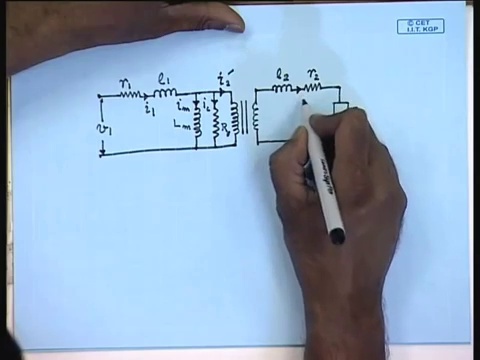 © CET
I.I.T. KGP
r₁ l₁ i₂′ l₂ r₂
i₁ i_m i_c
v₁ L_m